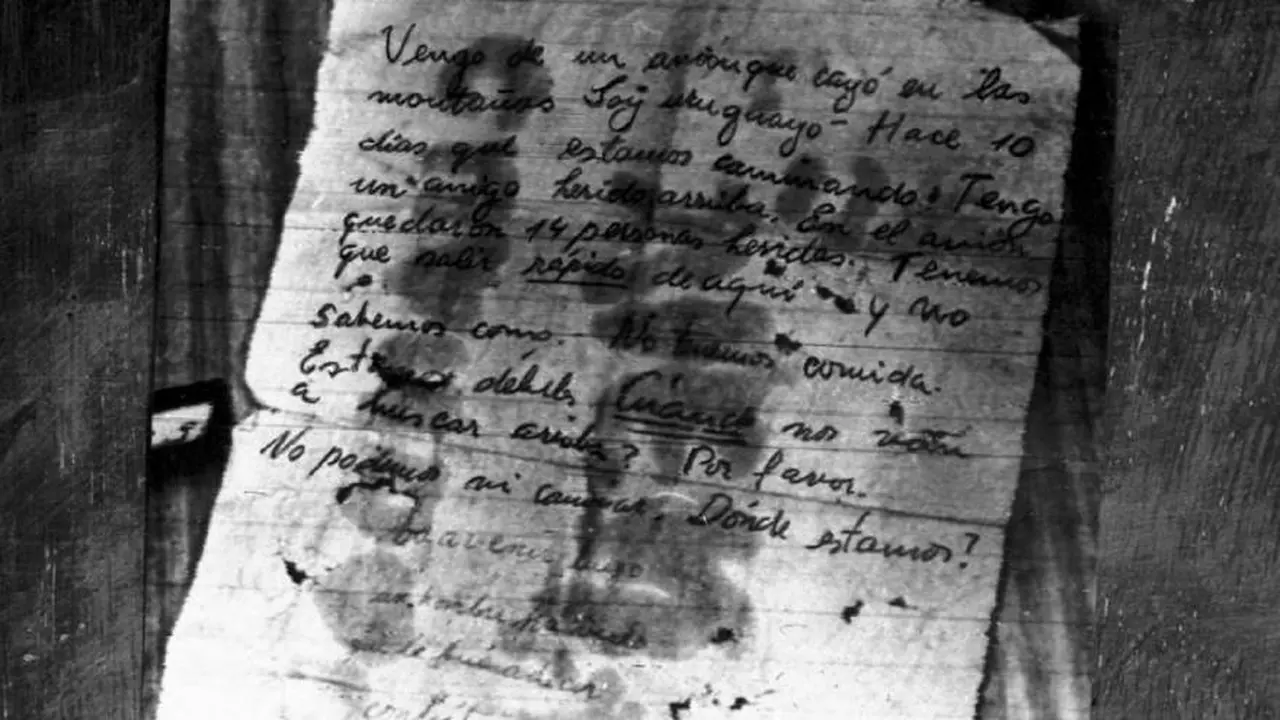 Vengo de un avión que cayó en las
montañas Soy uruguayo - Hace 10
días que estamos caminando. Tengo
un amigo herido arriba. En el avión
quedaron 14 personas heridas. Tenemos
que salir rápido de aquí y no
sabemos como. No tenemos comida.
Estamos débiles. Cuándo nos van
a buscar arriba? Por favor.
No podemos ni caminar. Dónde estamos?
va a venir luego